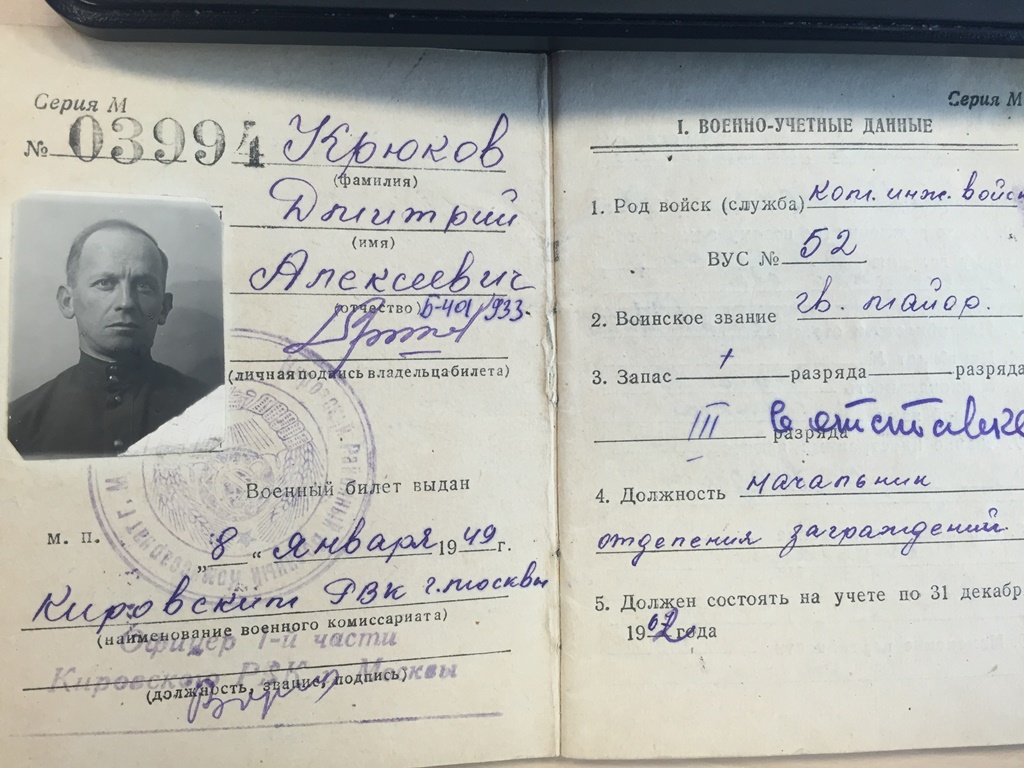 Серия М
№ 03994 Крюков
(фамилия)
Дмитрий
(имя)
Алексеевич
(отчество) Б-401/933.
(личная подпись владельца билета)
Военный билет выдан
М. П. „8„ января 1949 г.
Кировским РВК г. Москвы
(наименование военного комиссариата)
Офицер 1-й части
Кировского РВК г. Москвы
(должность, звание, подпись)
Серия М
I. ВОЕННО-УЧЕТНЫЕ ДАННЫЕ
1. Род войск (служба) инж. войск
ВУС № 52
2. Воинское звание гв. майор.
3. Запас разряда разряда
III разряда в отставке
4. Должность начальник
отделения заграждений
5. Должен состоять на учете по 31 декабр
1962 года